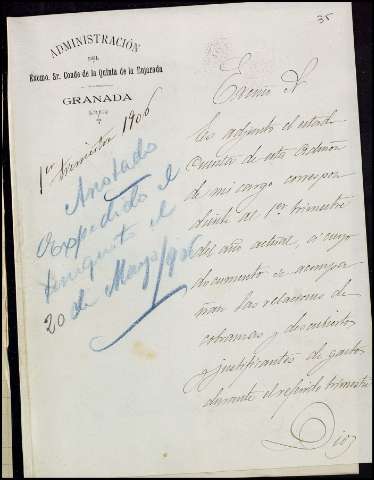 35
ADMINISTRACIÓN
DEL
Excmo. Sr. Conde de la Quinta de la Enjarada
GRANADA
1er trimestre 1906
Anotado
Expedido el
finiquito el
20 de Mayo/906
Excmo Sr.
Es adjunto el estado
cuenta de esta Admón
de mi cargo correspon
diente al 1er trimestre
del año actual, á cuyo
documento se acompa
ñan las relaciones de
cobranzas y descubiertos
y justificantes de gastos
durante el referido trimestre
Dios